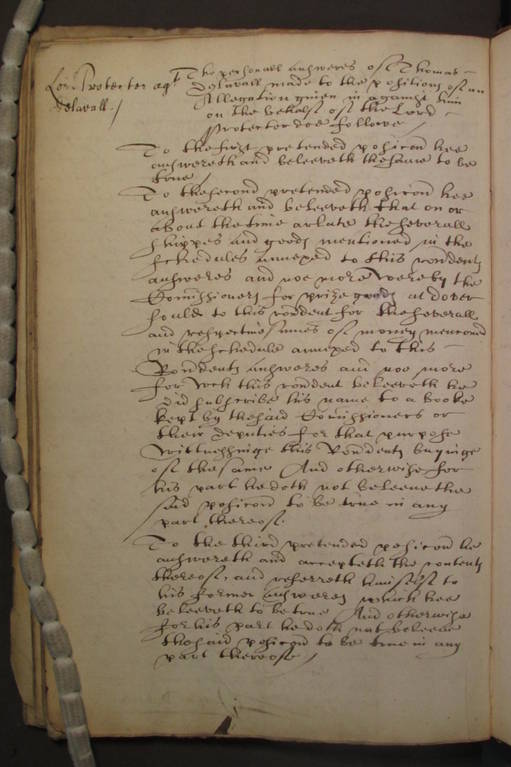 Lord Protector agt
Delavall /
The personall answeres of Thomas
Delavall made to the positions of an
Allegation given in against him
on the behalfe of the Lord
Protector doe followe /
To the first pretended posicon hee
answereth and beleeveth the same to be
true /
To the second pretended posicon hee
answereth and beleeveth that on or
about the time arlate the severall
shippes and goods mentioned in the
schedules annexed to this rondents
answeres and noe more Were by the
Commissioners for prize goods at dover
sould to this rondent for the severall
and respective summes of money menconed
in the schedule annexed to this
Rondents answeres and noe more
for wch this rondent beleeveth hee
did subscribe his name to a booke
kept by the said Commissioners or
their deputies for that purpose
Wittnessinge this Rendents buyinge
of the same And otherwise for
his part he doth not beleeve the
said posicon to be true in any
part thereof.
To the third pretended posicon he
answereth and accepteth the contents
thereof and referreth himselfe to
his former answeres which hee
beleeveth to be true And otherwise
for his part he doth not beleeve
the said posicon to be true in any
part thereof /